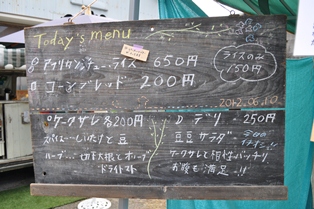 Today's menu
アメリカンシチューライス 650円
コーンブレッド 200円
ライスのみ
150円
2012.06.10.
ケークサレ 各200円
スパイシーしいたけと豆
ハーブ…切干大根とオリーブ
ドライトマト
D デリ … 250円
豆豆サラダ
ケークサレと相性バッチリ
お腹も満足!!